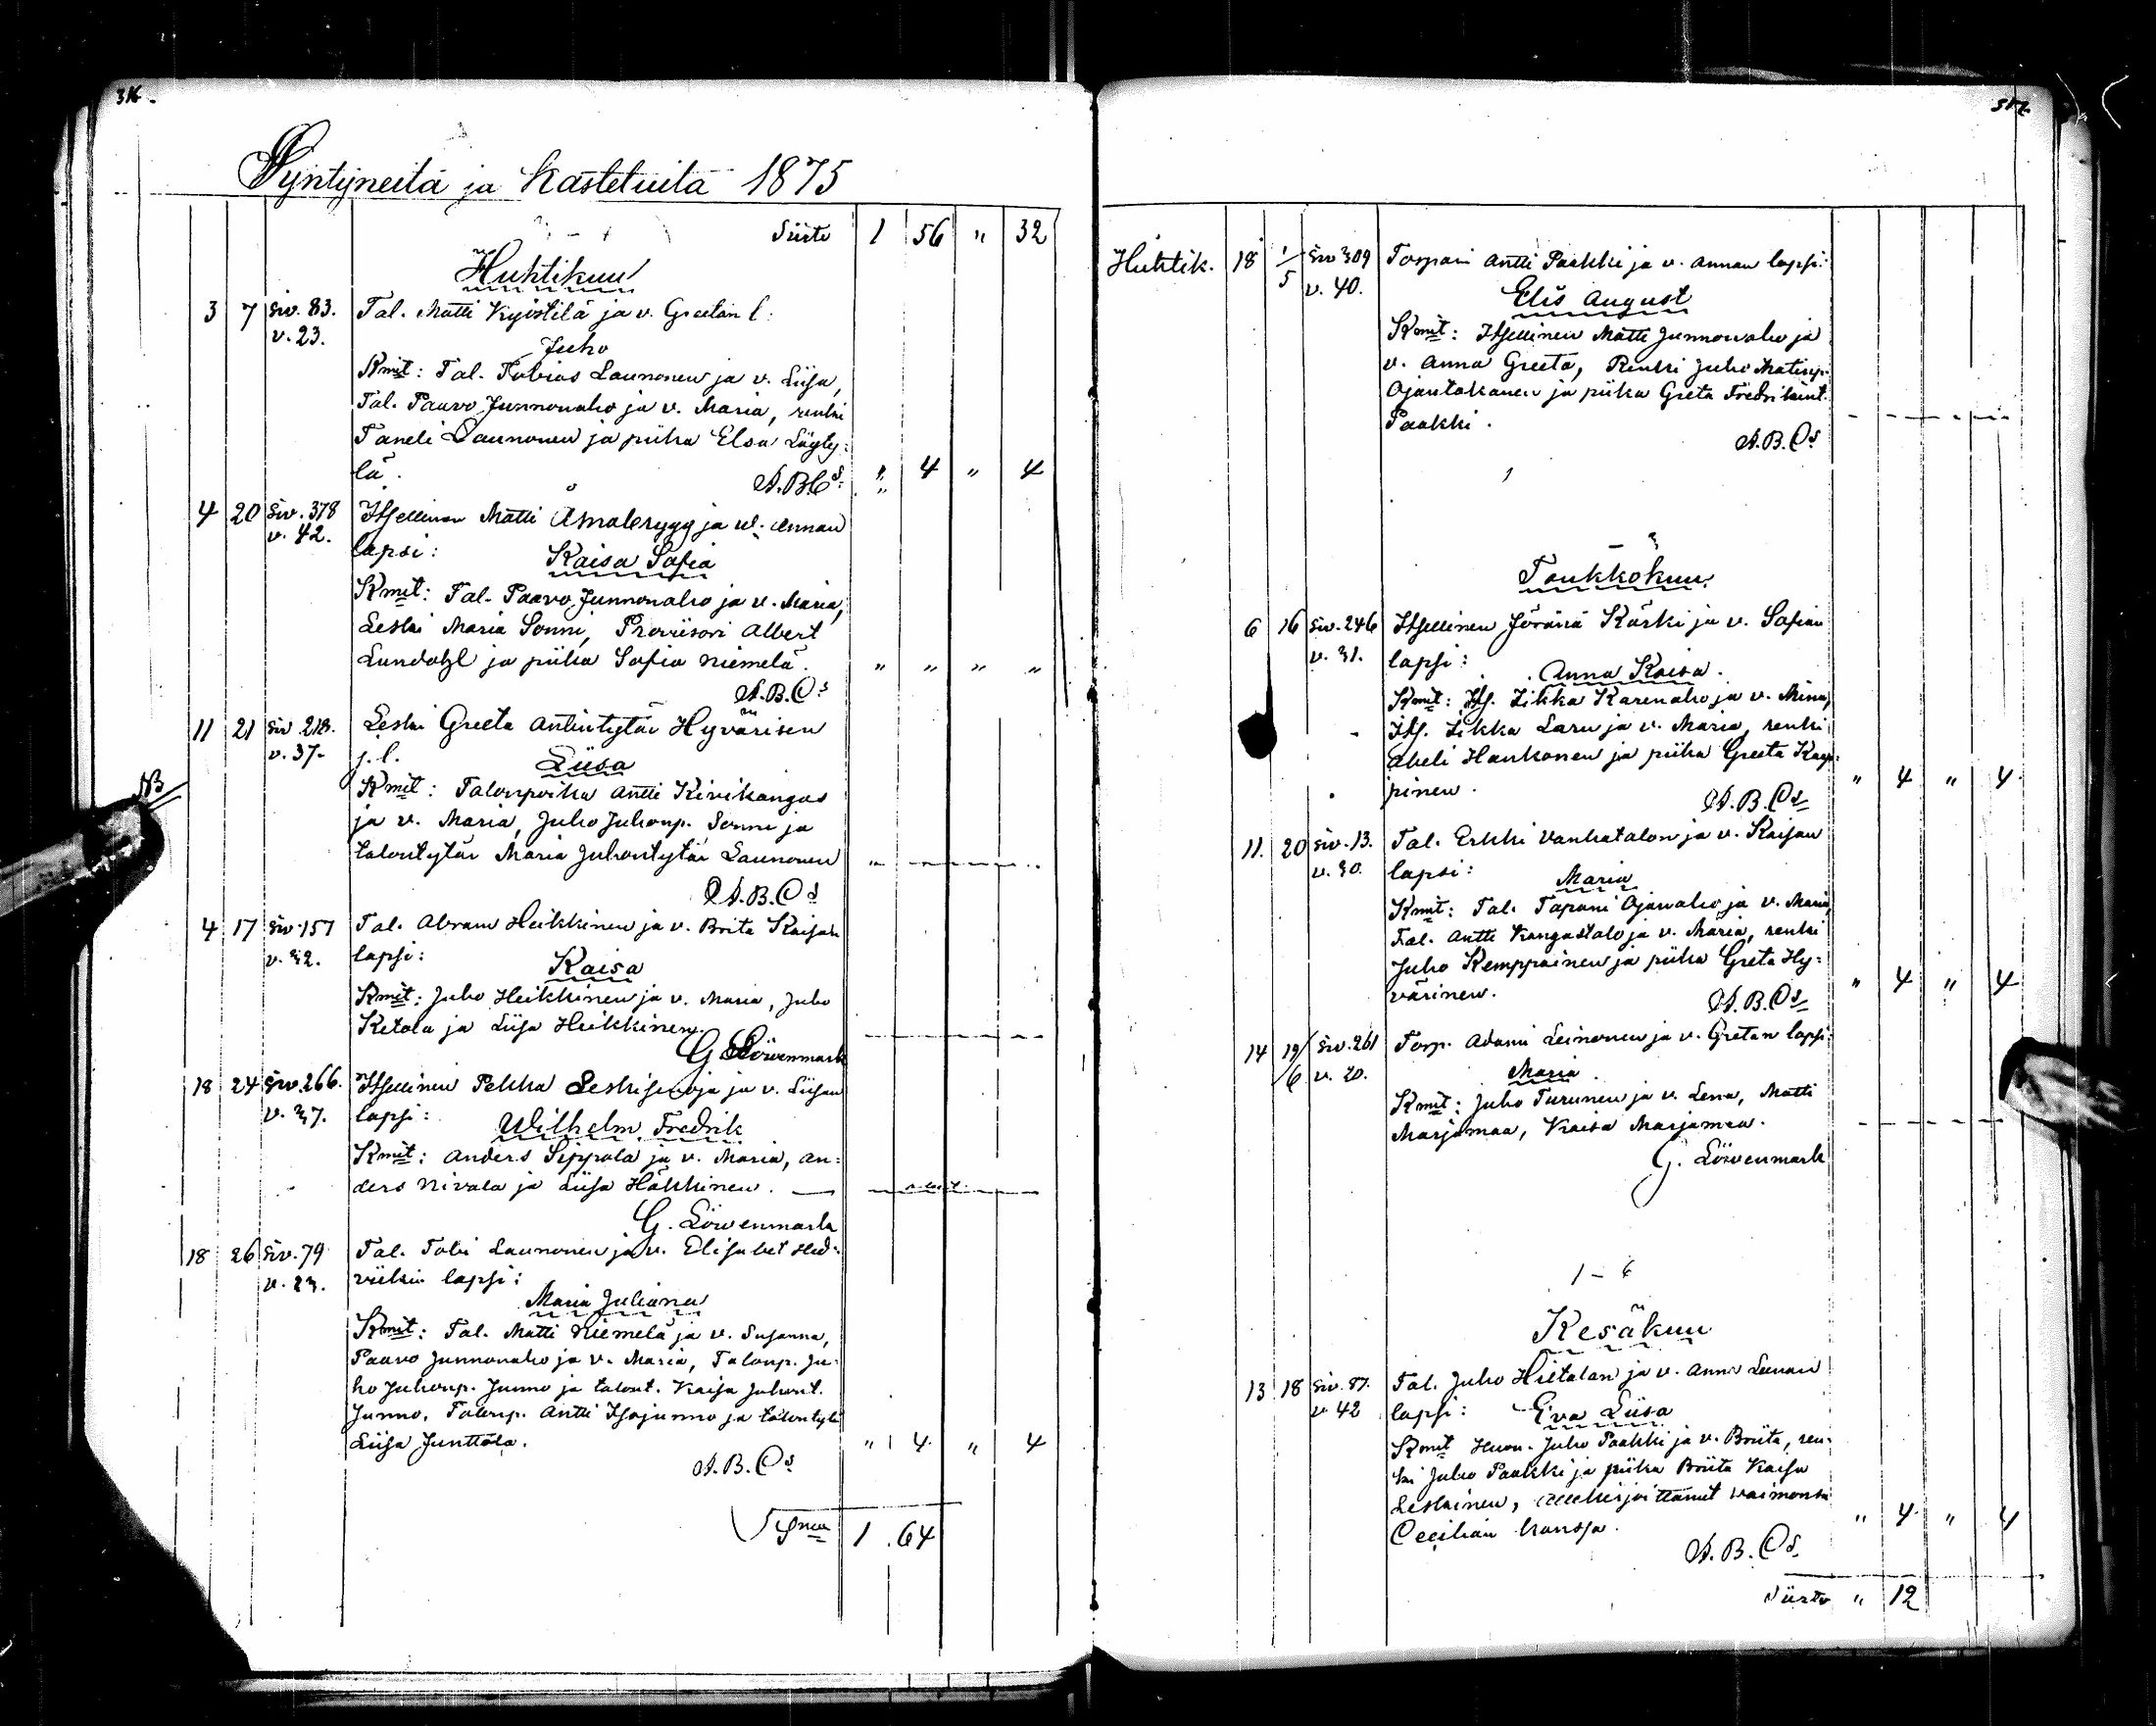 316.
Syntyneitä ja Kastetuita 1875
Siirto 1 56 " 32
Huhtikuu
3 7 Siv. 83. Tal. Matti Kyöstilä ja v. Greetan l:
v. 23. Juho
Kmit: Tal. Tobias Launonen ja v. Liisa,
Tal. Paavo Junnonaho ja v. Maria, renki
Taneli Launonen ja piika Elsa Löyty:
lä. A.B.Cs. " 4 " 4
4 20 Siv. 378 Itsellinen Matti Amalerygg ja v. Annan
v. 42. lapsi: Kaisa Sofia
Kmit: Tal. Paavo Junnonaho ja v. Maria,
Leski Maria Sonni, Proviisori Albert
Lundahl ja piika Sofia Niemelä. " " " "
A.B.Cs
11 21 Siv. 218. Leski Greeta Antintytär Hyvärisen
v. 37. j. l. Liisa
NB Kmit: Talonpoika Antti Kivikangas
ja v. Maria, Juho Juhonp. Sonni ja
talontytär Maria Juhontytär Launonen "
A.B.Cs
4 17 Siv. 157 Tal. Abram Heikkinen ja v. Brita Kaisan
v. 32. lapsi: Kaisa
Kmit: Juho Heikkinen ja v. Maria, Juho
Ketola ja Liisa Heikkinen.
G. Löwenmark
18 24 Siv. 266. Itsellinen Pekka Leskisenoja ja v. Liisan
v. 37. lapsi: Wilhelm Fredrik
Kmit: Anders Sippola ja v. Maria, An:
ders Nivala ja Liisa Häkkinen.
G. Löwenmark
18 26 Siv. 79 Tal. Tobi Launonen ja v. Elisabet Hed:
v. 23. viikin lapsi:
Maria Juliana
Kmit: Tal. Matti Niemelä ja v. Susanna,
Paavo Junnonaho ja v. Maria, Talonp. Ju:
ho Juhonp. Junno ja talont. Kaisa Juhont.
Junno, Talonp. Antti Isojunno ja talontytär
Liisa Junttola. " 4 " 4
A.B.Cs
Summa 1 . 64
317.
Huhtik. 18 1/5 Siv 309 Torpari Antti Paakki ja v. Annan lapsi:
v. 40. Elis August
Kmit: Itsellinen Matti Junnonaho ja
v. Anna Greeta, Renki Juho Matinp.
Ajantakanen ja piika Greta Fredrikint.
Paakki.
A.B.Cs
Toukkokuu
6 16 Siv. 246 Itsellinen Jöränä Kärki ja v. Sofian
v. 31. lapsi: Anna Kaisa.
Kmit: Its. Iikka Karenaho ja v. Mina,
Its. Iikka Laru ja v. Maria, renki
Abeli Hankonen ja piika Greeta Karp:
pinen. " 4 " 4
A.B.Cs
11. 20 Siv. 13. Tal. Erkki Vanhatalon ja v. Kaisan
v. 30. lapsi: Maria
Kmit: Tal. Tapani Ojanaho ja v. Maria,
Tal. Antti Kangastalo ja v. Maria, renki
Juho Kemppainen ja piika Greta Hy:
värinen. " 4 " 4
A.B.Cs
14 19/6 Siv. 261 Torp. Adami Leinonen ja v. Gretan lapsi:
v. 20. Maria
Kmit: Juho Turunen ja v. Lena, Matti
Marjamaa, Kaisa Marjamaa.
G. Löwenmark
1 - 6
Kesäkuu
13 18 Siv. 87. Tal. Juho Hietalan ja v. Anna Leenan
v. 42 lapsi: Eva Liisa
Kmit Huon. Juho Paakki ja v. Briita, ren:
ki Juho Paakki ja piika Briita Kaisa
Leskinen, allekirjoittanut vaimonsa
Cecilian kanssa. " 4 " 4
A.B.Cs.
Siirto " 12